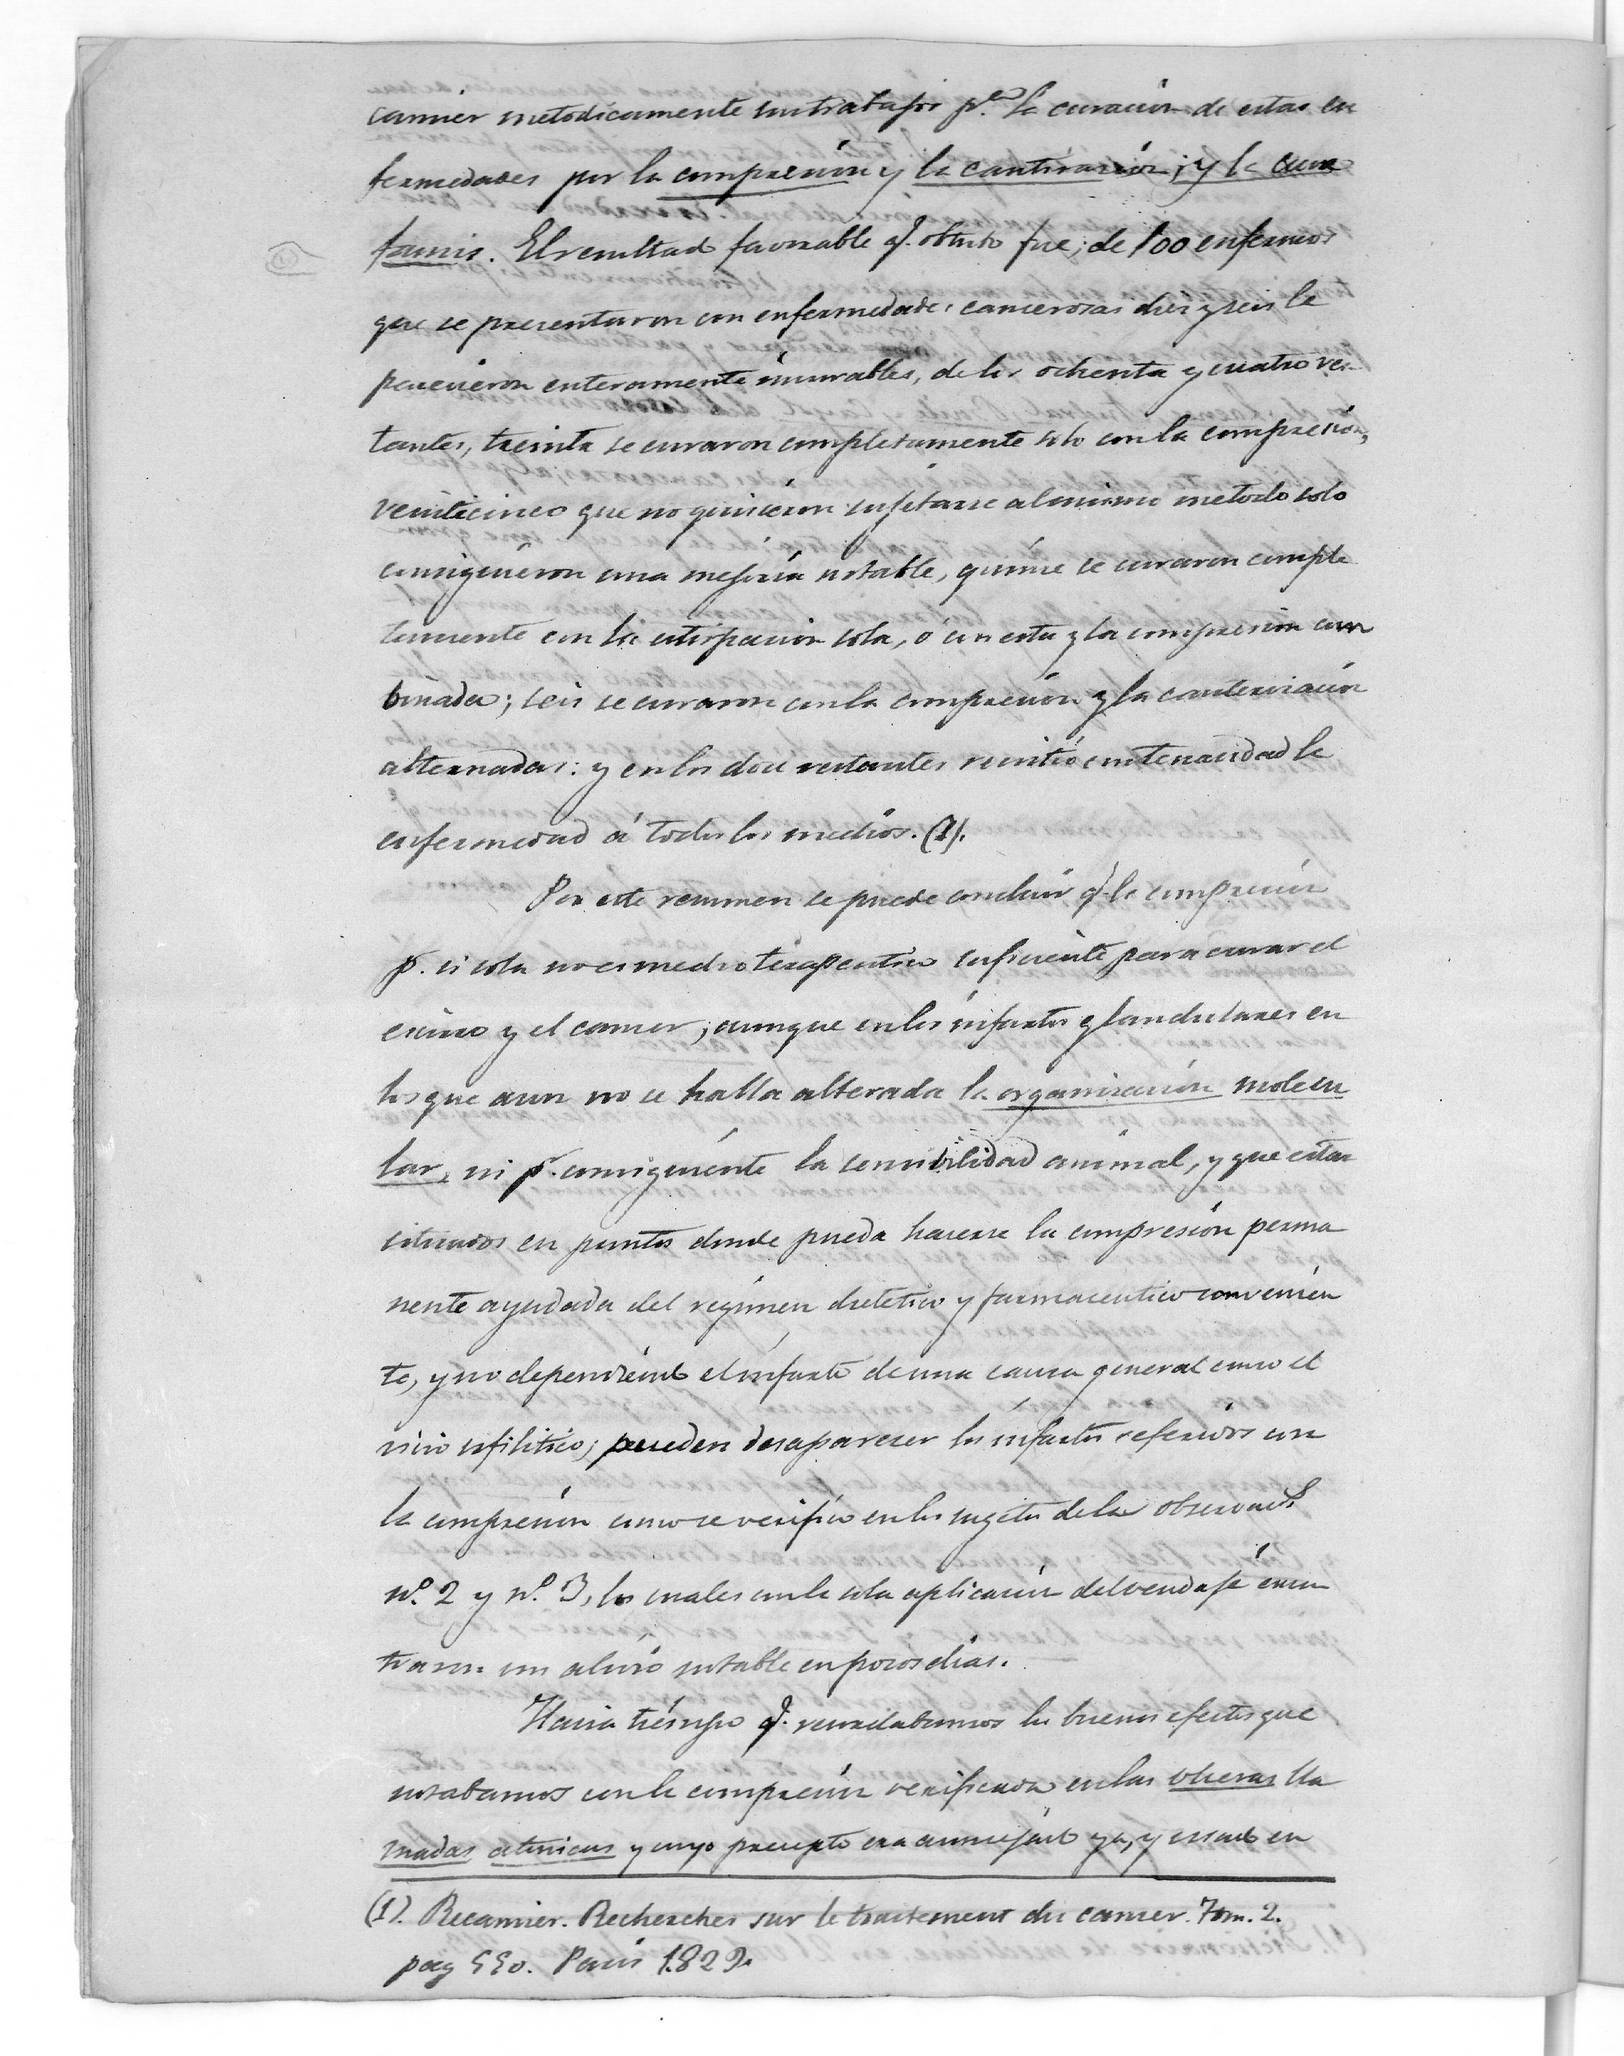 camier metodicamente sus trabajos p.ª la curacion de estas en
fermedades por la compresion y la cauterizacion; y la cura
famis. El resultado favorable q.e obtubo fue; de 100 enfermos
que se presentaron con enfermedades cancerosas diez y seis le
parecieron enteramente incurables, de los ochenta y cuatro res
tantes, treinta se curaron completamente solo con la compresion,
veinticinco que no quisieron sujetarse al mismo metodo solo
consiguieron una mejoría notable, quince se curaron comple
tamente con la estirpacion sola, ó con esta y la compresion com
binada; seis se curaron con la compresion y la cauterizacion
alternadas: y en los doce restantes resistió con tenacidad la
enfermedad á todos los medios. (1).
Por este resumen se puede concluir q.e la compresion
p.r si sola no es medio terapeutico suficiente para curar el
escirro y el cancer; aunque en los infartos glandulares en
los que aun no se halla alterada la organizacion molecu
lar, ni p.r consiguiente la sensibilidad animal, y que estan
situados en puntos donde pueda hacerse la compresion perma
nente ayudada del regimen dietetico y farmaceutico convenien
te, y no dependiendo el infarto de una causa general como el
vicio sifilitico; pueden desaparecer los infartos referidos con
la compresion como se verificó en los sugetos de las observac.s
n.º 2 y n.º 3, los cuales con la sola aplicacion del vendaje encon
traron un alivio notable en pocos dias.
Hacia tiempo q.e recordabamos los buenos efectos que
notabamos con la compresion verificada en las ulceras lla
madas atonicas y cuyo precepto era aconsejado ya, y usado en
(1). Recamier. Recherches sur le traitement du cancer. Tom. 2.
pag 550. Paris 1829.